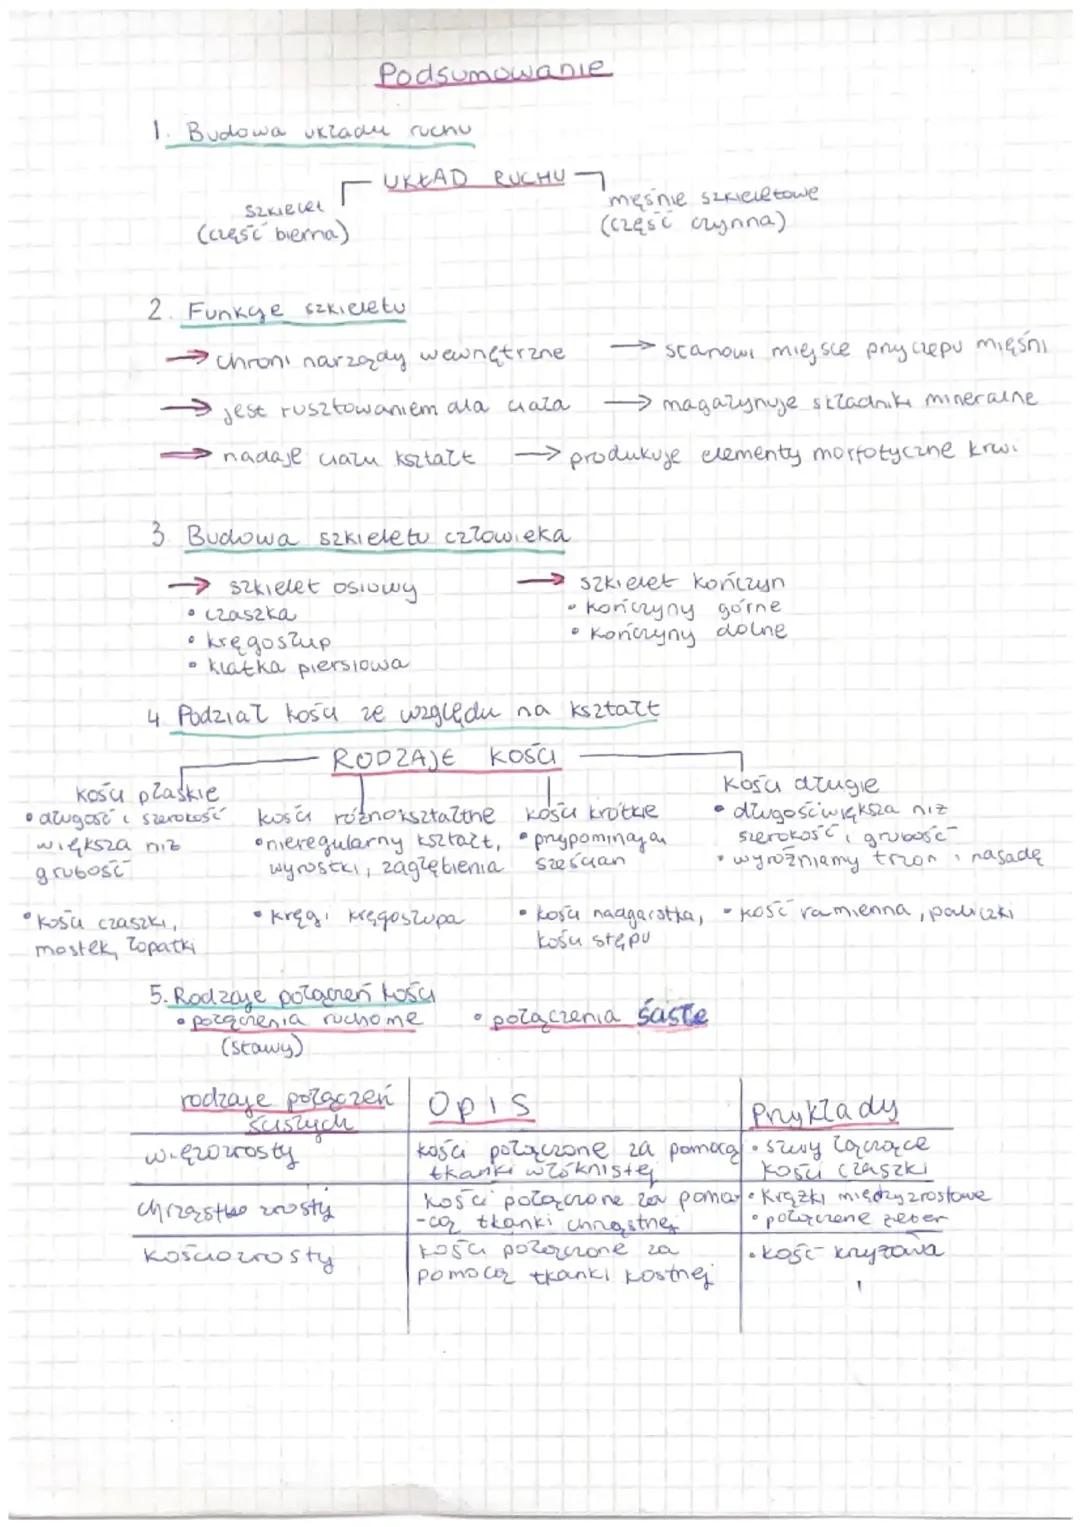 Podsumowanie
1. Budowa układu ruchu
UKŁAD RUCHU
szkielet
(część bierna)
mięśnie szkieletowe
(część czynna)
2. Funkcje szkieletu
→ chroni narządy wewnętrzne → stanowi miejsce przyczepu mięśni
→ jest rusztowaniem dla ciała → magazynuje składniki mineralne
→ nadaje ciału kształt → produkuje elementy morfotyczne krwi
3 Budowa szkieletu człowieka
→ szkielet osiowy
• czaszka
• kręgosłup
• klatka piersiowa
→ szkielet kończyn
• kończyny górne
• kończyny dolne
4 Podział kości ze względu na kształt
RODZAJE KOŚCI
kości płaskie
• długość i szerokość
większa niż
grubość
• kości czaszki,
mostek, łopatki
kości różnokształtne
• nieregularny kształt,
wyrostki, zagłębienia
• kręgi kręgosłupa
kości krótkie
• przypominają
sześcian
• kości nadgarstka,
kości stępu
kości długie
• długość większa niż
szerokość i grubość
• wyróżniamy trzon i nasadę
• kość ramienna, paliczki
5. Rodzaje połączeń kości
• połączenia ruchome
(stawy)
• połączenia ścisłe
rodzaje połączeń
ścisłych
Opis
Przykłady
więzozrosty
kości połączone za pomocą
tkanki włóknistej
• szwy łączące
kości czaszki
chrząstko zrosty
kości połączone za poma
-cą tkanki chrząstnej
• krążki międzyzrostowe
• połączenie żeber
kościozrosty
kości połączone za
pomocą tkanki kostnej
• kość krzyżowa